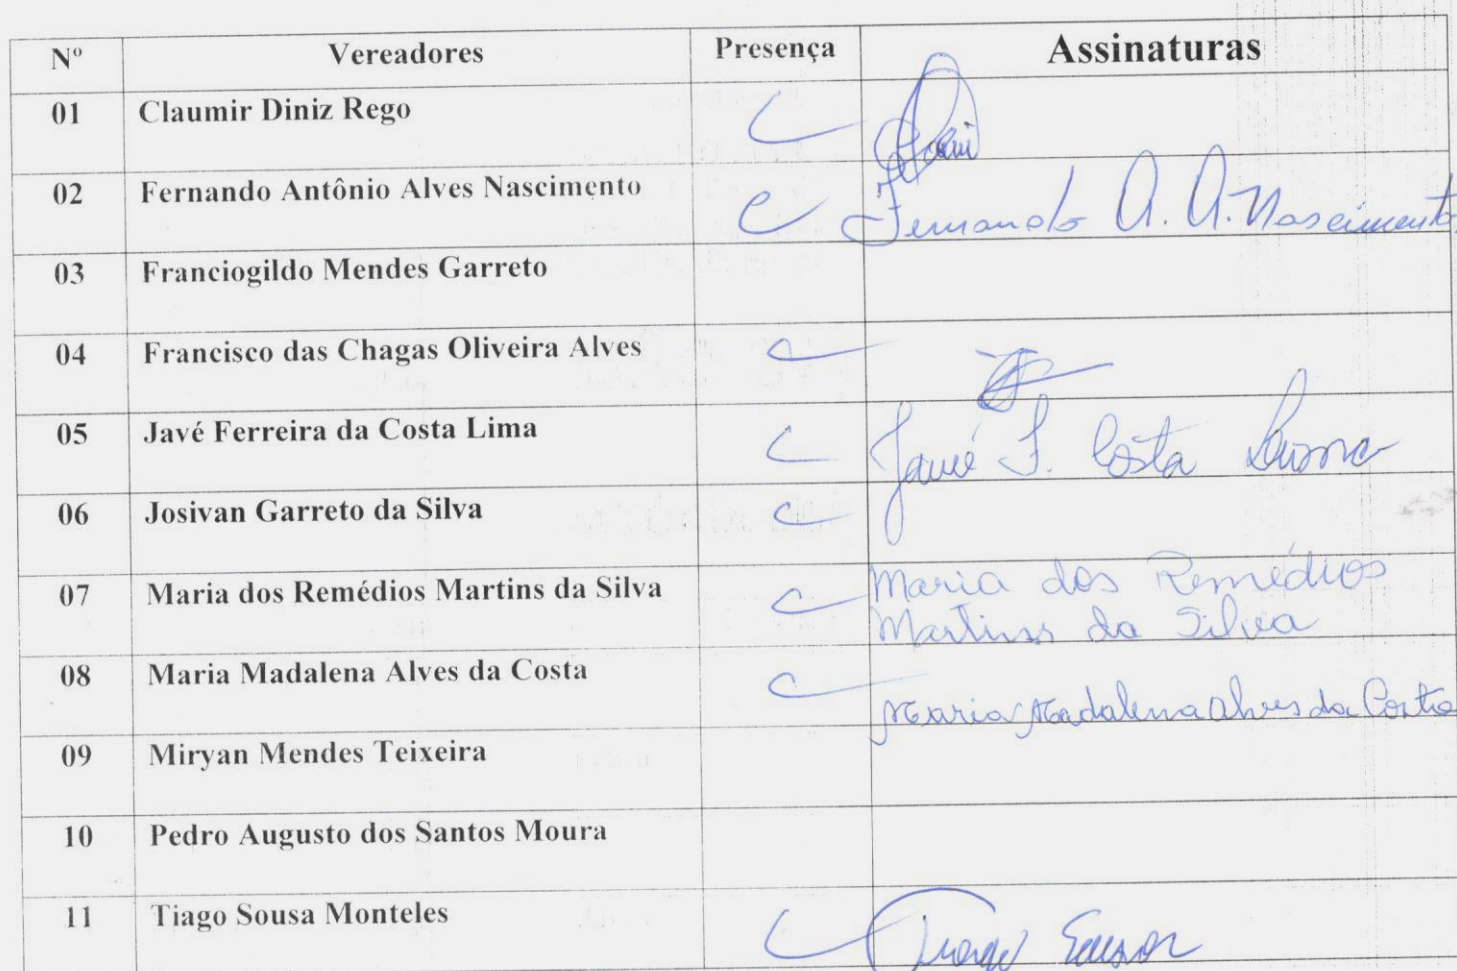 Nº Vereadores Presença Assinaturas
01 Claumir Diniz Rego
02 Fernando Antônio Alves Nascimento Fernando A. A. Nascimento
03 Franciogildo Mendes Garreto
04 Francisco das Chagas Oliveira Alves
05 Javé Ferreira da Costa Lima Javé F. Costa Lima
06 Josivan Garreto da Silva
07 Maria dos Remédios Martins da Silva Maria dos Remédios
Martins da Silva
08 Maria Madalena Alves da Costa Maria Madalena Alves da Costa
09 Miryan Mendes Teixeira
10 Pedro Augusto dos Santos Moura
11 Tiago Sousa Monteles Tiago Sousa